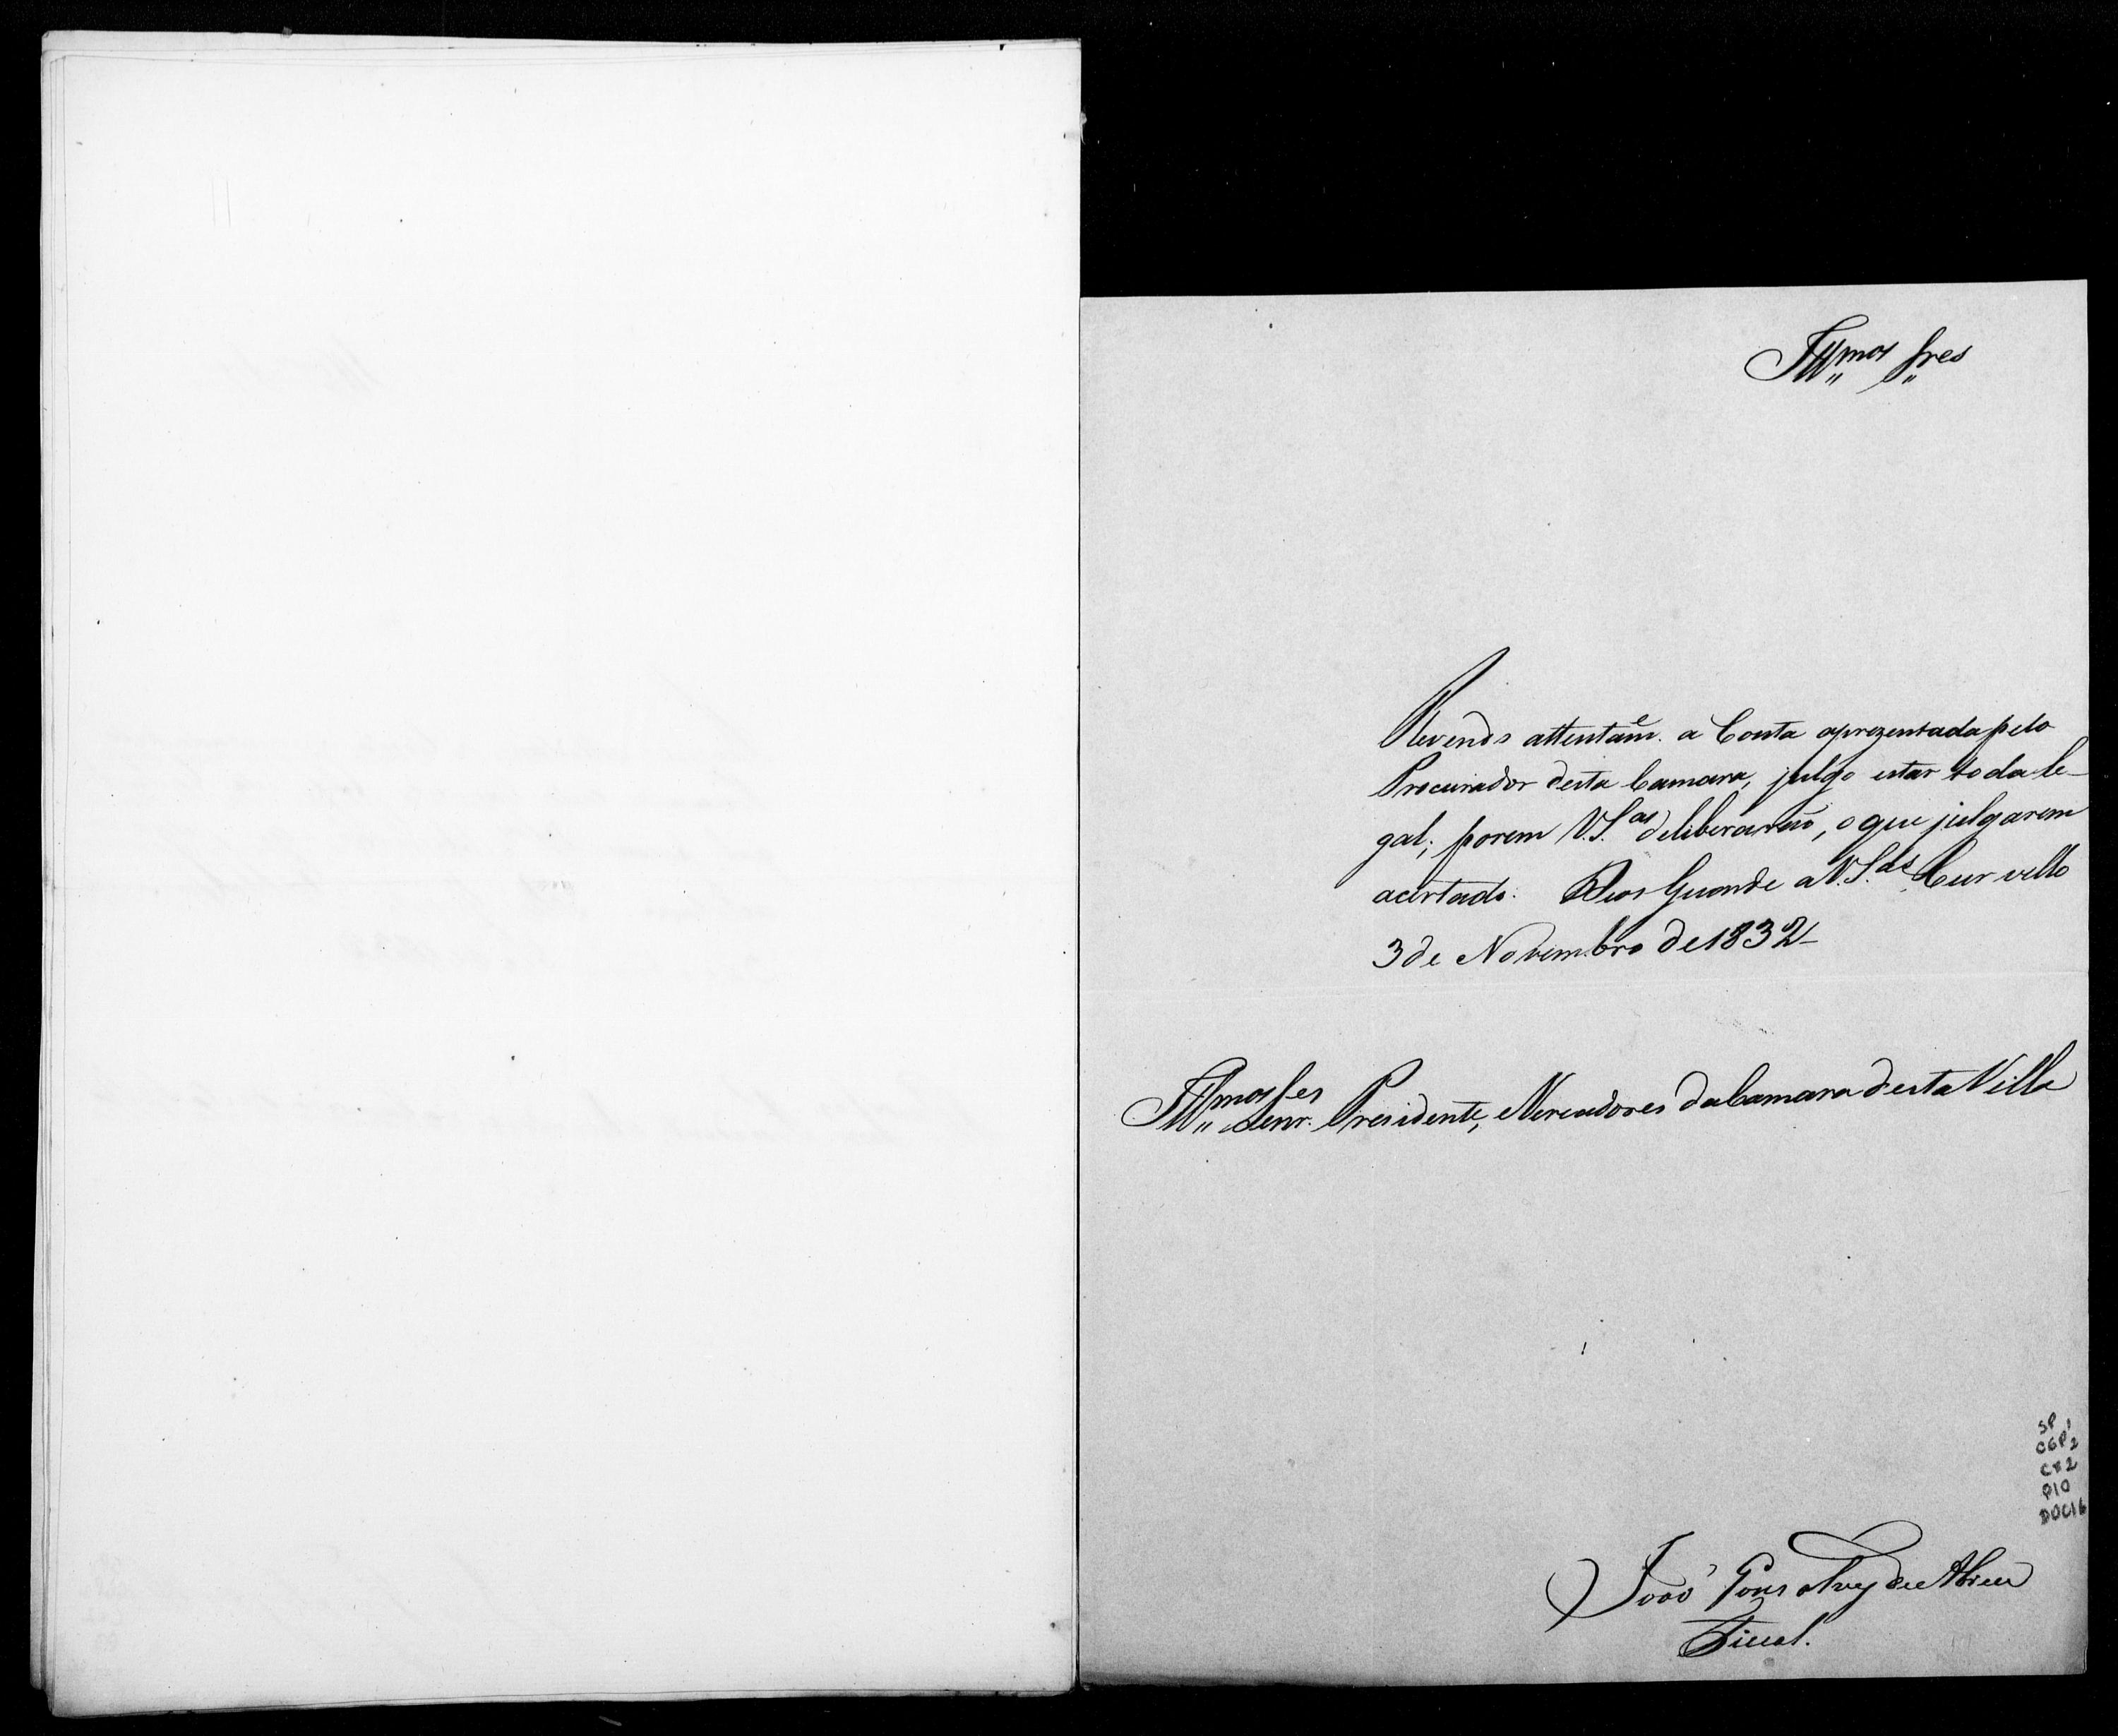 Illmos Snres
Revendo attentame. a Conta aprezentada pelo
Procurador desta Camara, julgo estar toda le-
gal; porem V.S.as deliberarão, o que julgarem
acertado. Deos Guarde a V.S.as Curvello
3 de Novembro de 1832
Illmos Senres. Presidente, e Vereadores da Camara desta Villa
SP 1
CGP 2
CX 2
P10
DOC16
João Gonsalvez de Abreu
Fiscal.